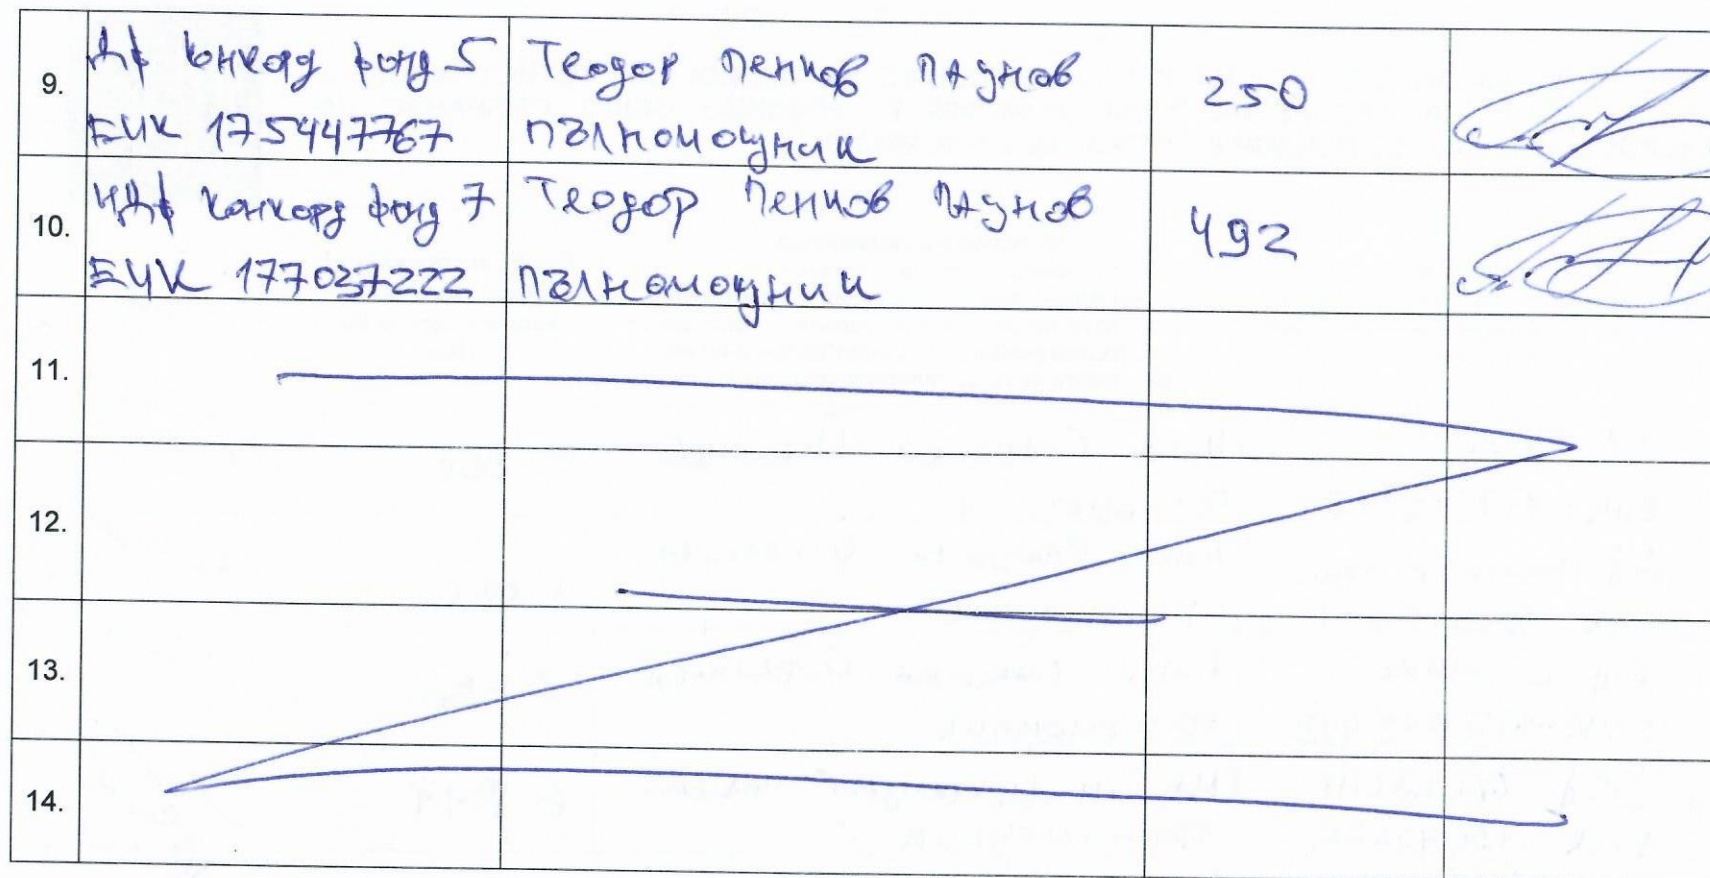 9.
ДФ Конкорд фонд 5
ЕИК 175447767
Теодор Пенков Паунов
пълномощник
250
10.
НДФ Конкорд фонд 7
ЕИК 177037222
Теодор Пенков Паунов
пълномощник
492
11.
12.
13.
14.